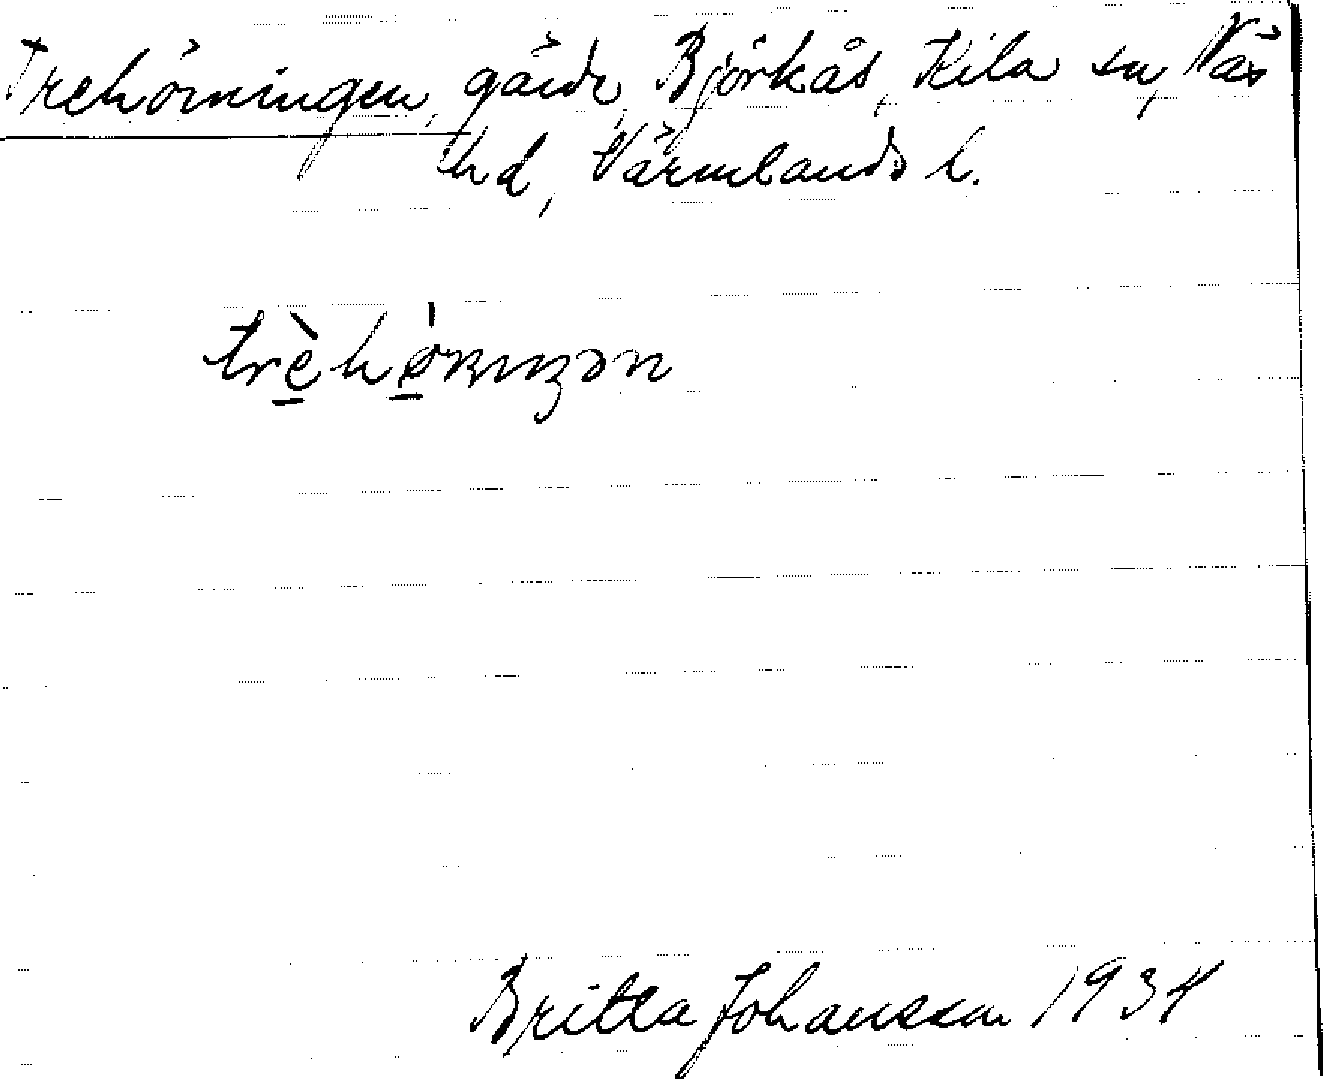 Trehörningen, gärde, Björkås, Kila sn, Näs
hd, Värmlands l.
trèhø̀rnıŋən
Britta Johansson 1934